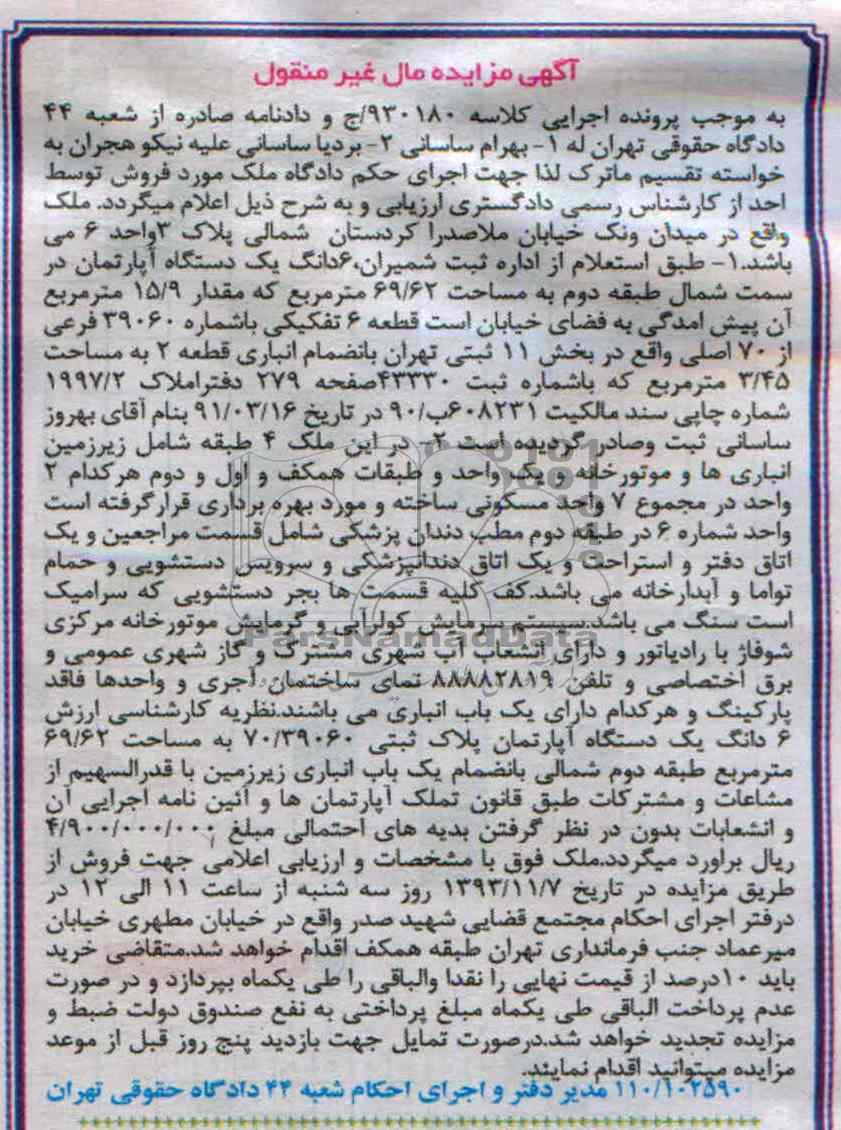 آگهی مزایده مال غیر منقول
به موجب پرونده اجرایی کلاسه ۹۳۰۱۸۰/ج و دادنامه صادره از شعبه ۴۴
دادگاه حقوقی تهران له ۱- بهرام ساسانی ۲- بردیا ساسانی علیه نیکو هجران به
خواسته تقسیم ماترک لذا جهت اجرای حکم دادگاه ملک مورد فروش توسط
احد از کارشناس رسمی دادگستری ارزیابی و به شرح ذیل اعلام میگردد. ملک
واقع در میدان ونک خیابان ملاصدرا کردستان شمالی پلاک ۳واحد ۶ می
باشد.۱- طبق استعلام از اداره ثبت شمیران،۶دانگ یک دستگاه آپارتمان در
سمت شمال طبقه دوم به مساحت ۶۹/۶۲ مترمربع که مقدار ۱۵/۹ مترمربع
آن پیش امدگی به فضای خیابان است قطعه ۶ تفکیکی باشماره ۳۹۰۶۰ فرعی
از ۷۰ اصلی واقع در بخش ۱۱ ثبتی تهران بانضمام انباری قطعه ۲ به مساحت
۳/۴۵ مترمربع که باشماره ثبت ۴۳۳۳۰صفحه ۲۷۹ دفتراملاک ۱۹۹۷/۲
شماره چاپی سند مالکیت ۶۰۸۲۳۱ب/۹۰ در تاریخ ۹۱/۰۳/۱۶ بنام آقای بهروز
ساسانی ثبت وصادر گردیده است ۲- در این ملک ۴ طبقه شامل زیرزمین
انباری ها و موتورخانه و یک واحد و طبقات همکف و اول و دوم هرکدام ۲
واحد در مجموع ۷ واحد مسکونی ساخته و مورد بهره برداری قرارگرفته است
واحد شماره ۶ در طبقه دوم مطب دندان پزشکی شامل قسمت مراجعین و یک
اتاق دفتر و استراحت و یک اتاق دندانپزشکی و سرویس دستشویی و حمام
تواما و آبدارخانه می باشد.کف کلیه قسمت ها بجر دستشویی که سرامیک
است سنگ می باشد.سیستم سرمایش کولرآبی و گرمایش موتورخانه مرکزی
شوفاژ با رادیاتور و دارای انشعاب آب شهری مشترک و گاز شهری عمومی و
برق اختصاصی و تلفن ۸۸۸۸۲۸۱۹ نمای ساختمان آجری و واحدها فاقد
پارکینگ و هرکدام دارای یک باب انباری می باشند.نظریه کارشناسی ارزش
۶ دانگ یک دستگاه آپارتمان پلاک ثبتی ۷۰/۳۹۰۶۰ به مساحت ۶۹/۶۲
مترمربع طبقه دوم شمالی بانضمام یک باب انباری زیرزمین با قدرالسهیم از
مشاعات و مشترکات طبق قانون تملک آپارتمان ها و آئین نامه اجرایی آن
و انشعابات بدون در نظر گرفتن بدیه های احتمالی مبلغ ۴/۹۰۰/۰۰۰/۰۰۰
ریال براورد میگردد.ملک فوق با مشخصات و ارزیابی اعلامی جهت فروش از
طریق مزایده در تاریخ ۱۳۹۳/۱۱/۷ روز سه شنبه از ساعت ۱۱ الی ۱۲ در
درفتر اجرای احکام مجتمع قضایی شهید صدر واقع در خیابان مطهری خیابان
میرعماد جنب فرمانداری تهران طبقه همکف اقدام خواهد شد.متقاضی خرید
باید ۱۰درصد از قیمت نهایی را نقدا والباقی را طی یکماه بپردازد و در صورت
عدم پرداخت الباقی طی یکماه مبلغ پرداختی به نفع صندوق دولت ضبط و
مزایده تجدید خواهد شد.درصورت تمایل جهت بازدید پنج روز قبل از موعد
مزایده میتوانید اقدام نمایند.
۱۱۰/۱۰۲۵۹۰ مدیر دفتر و اجرای احکام شعبه ۴۴ دادگاه حقوقی تهران
ParsNamadData